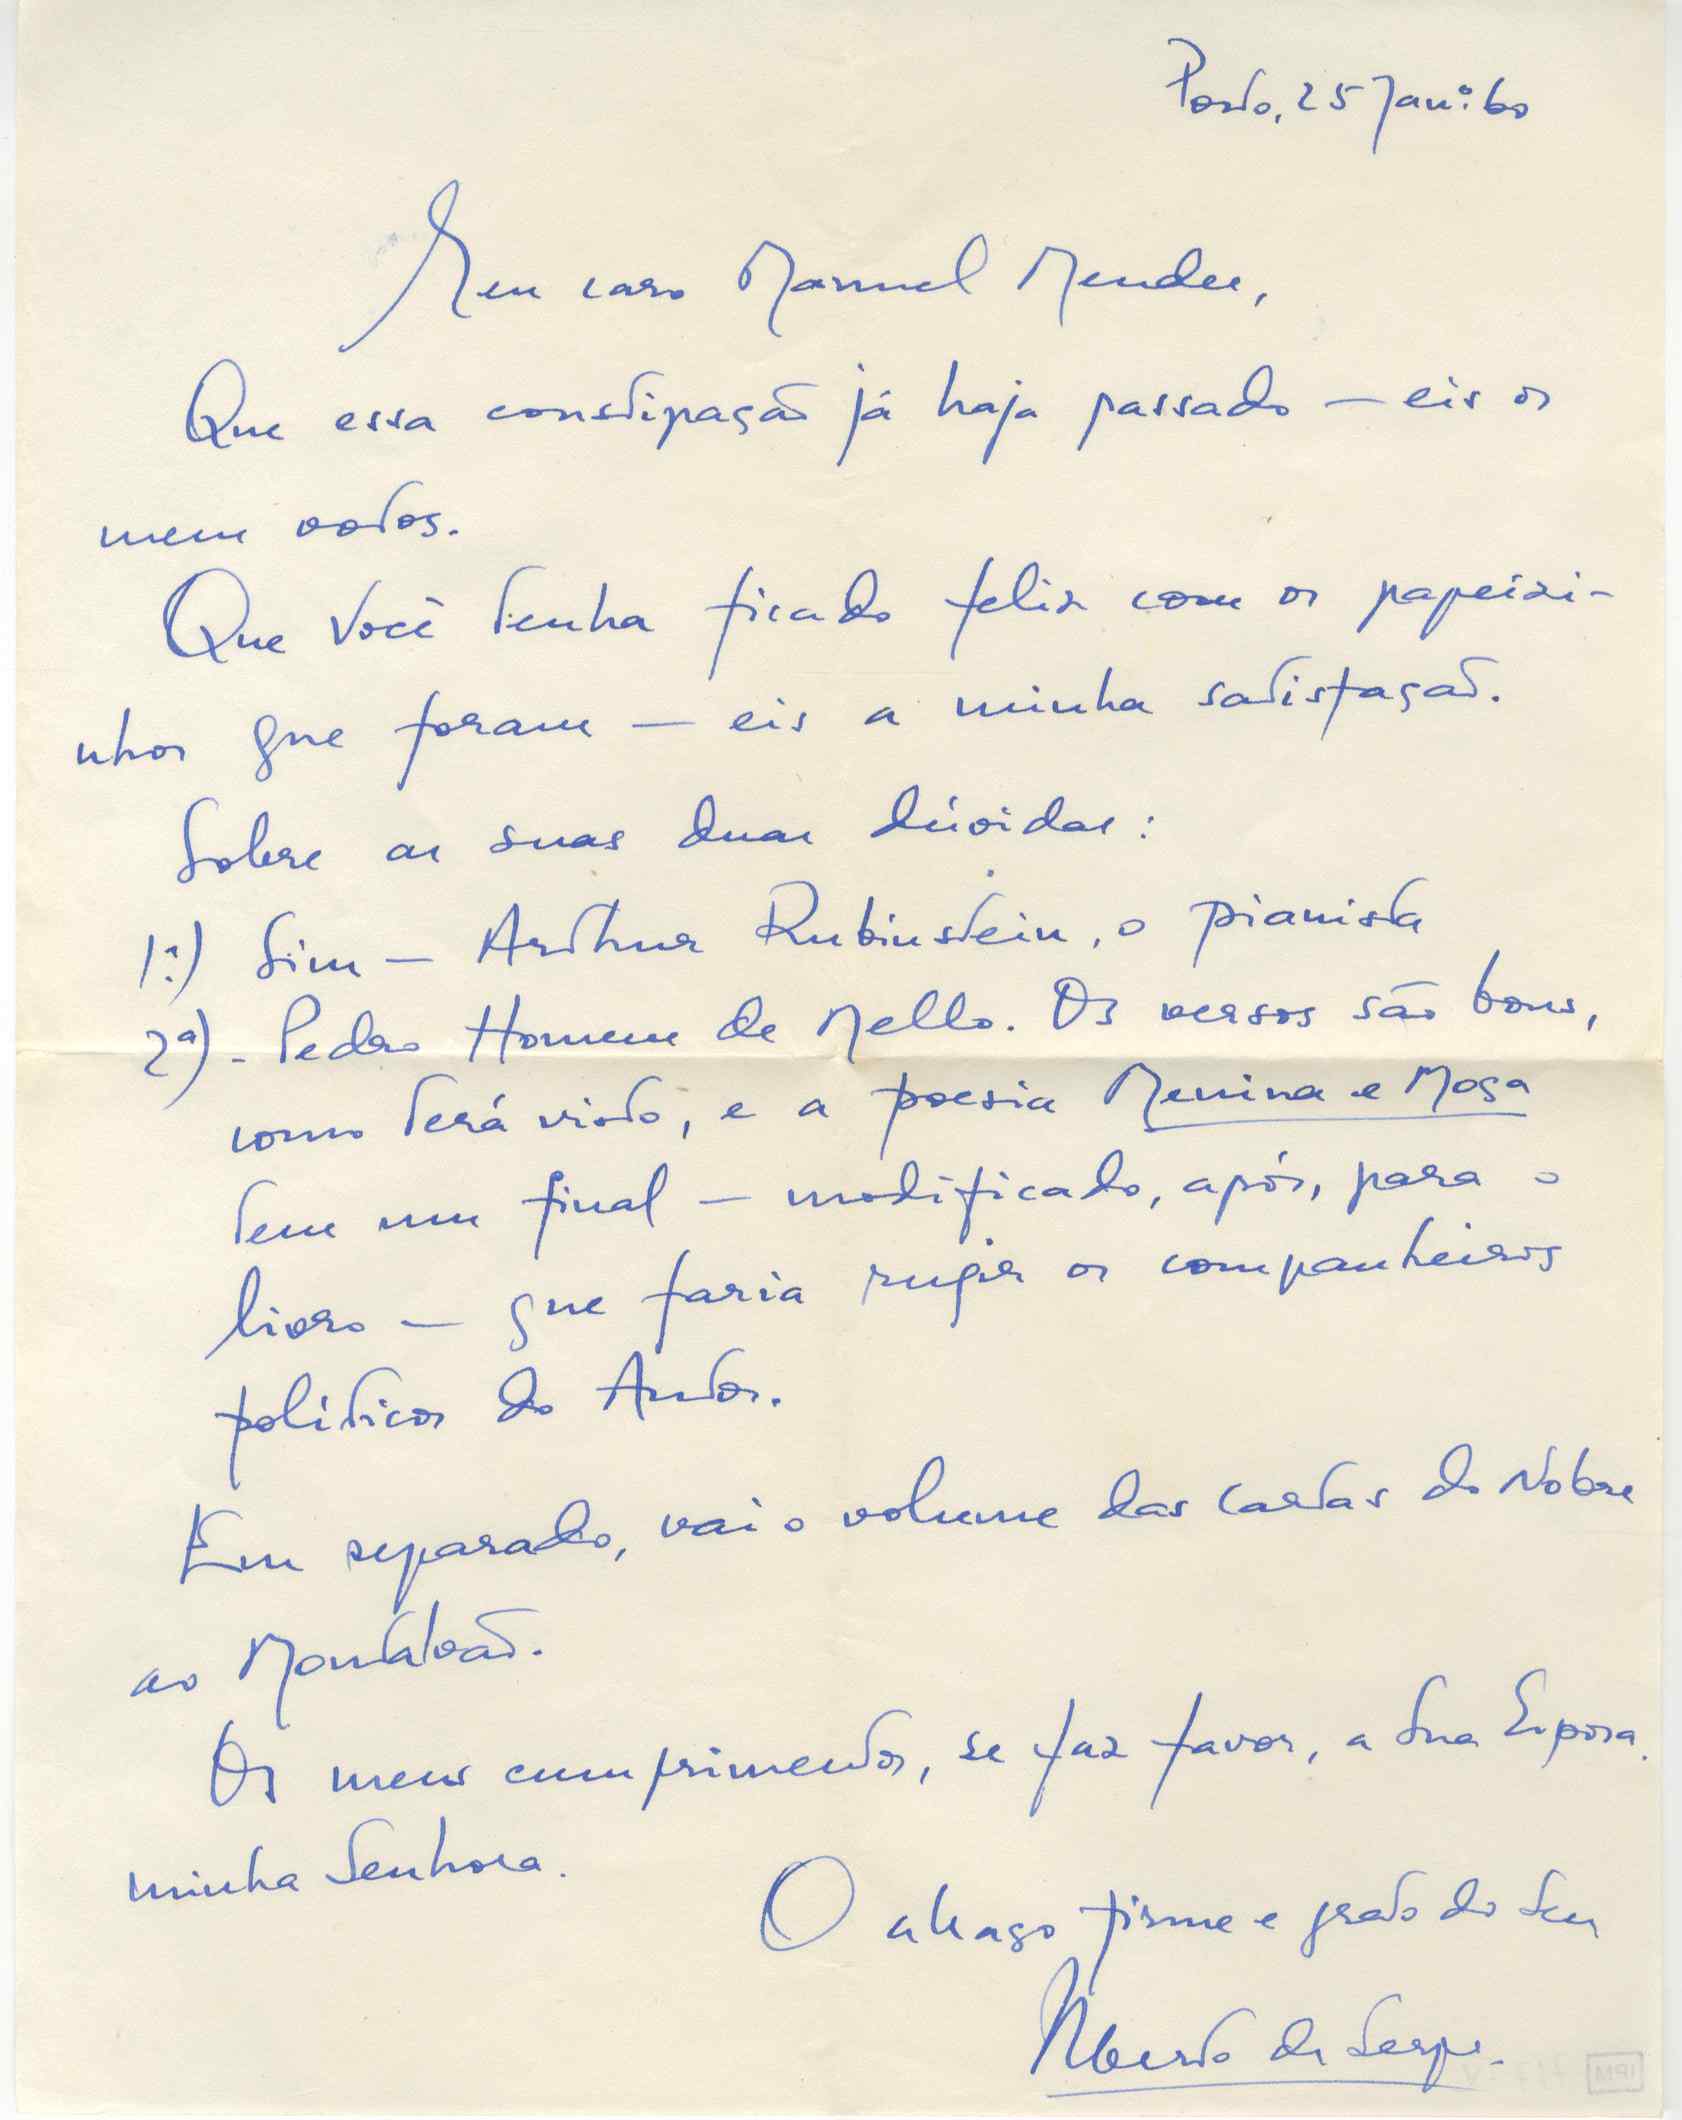 Porto, 25 Jan.º 60
Meu caro Manuel Mendes,
Que essa constipação já haja passado — eis os
meus votos.
Que Você tenha ficado feliz com os papeizi-
nhos que foram — eis a minha satisfação.
Sobre as suas duas dúvidas:
1ª) Sim — Arthur Rubinstein, o pianista
2ª) - Pedro Homem de Mello. Os versos são bons,
como terá visto, e a poesia Menina e Moça
tem um final — modificado, após, para o
livro — que faria rugir os companheiros
políticos do Autor.
Em separado, vai o volume das cartas do Nobre
ao Montalvão.
Os meus cumprimentos, se faz favor, a Sua Esposa.
minha Senhora.
O abraço firme e grato do Seu
Alberto de Serpa.
IPM